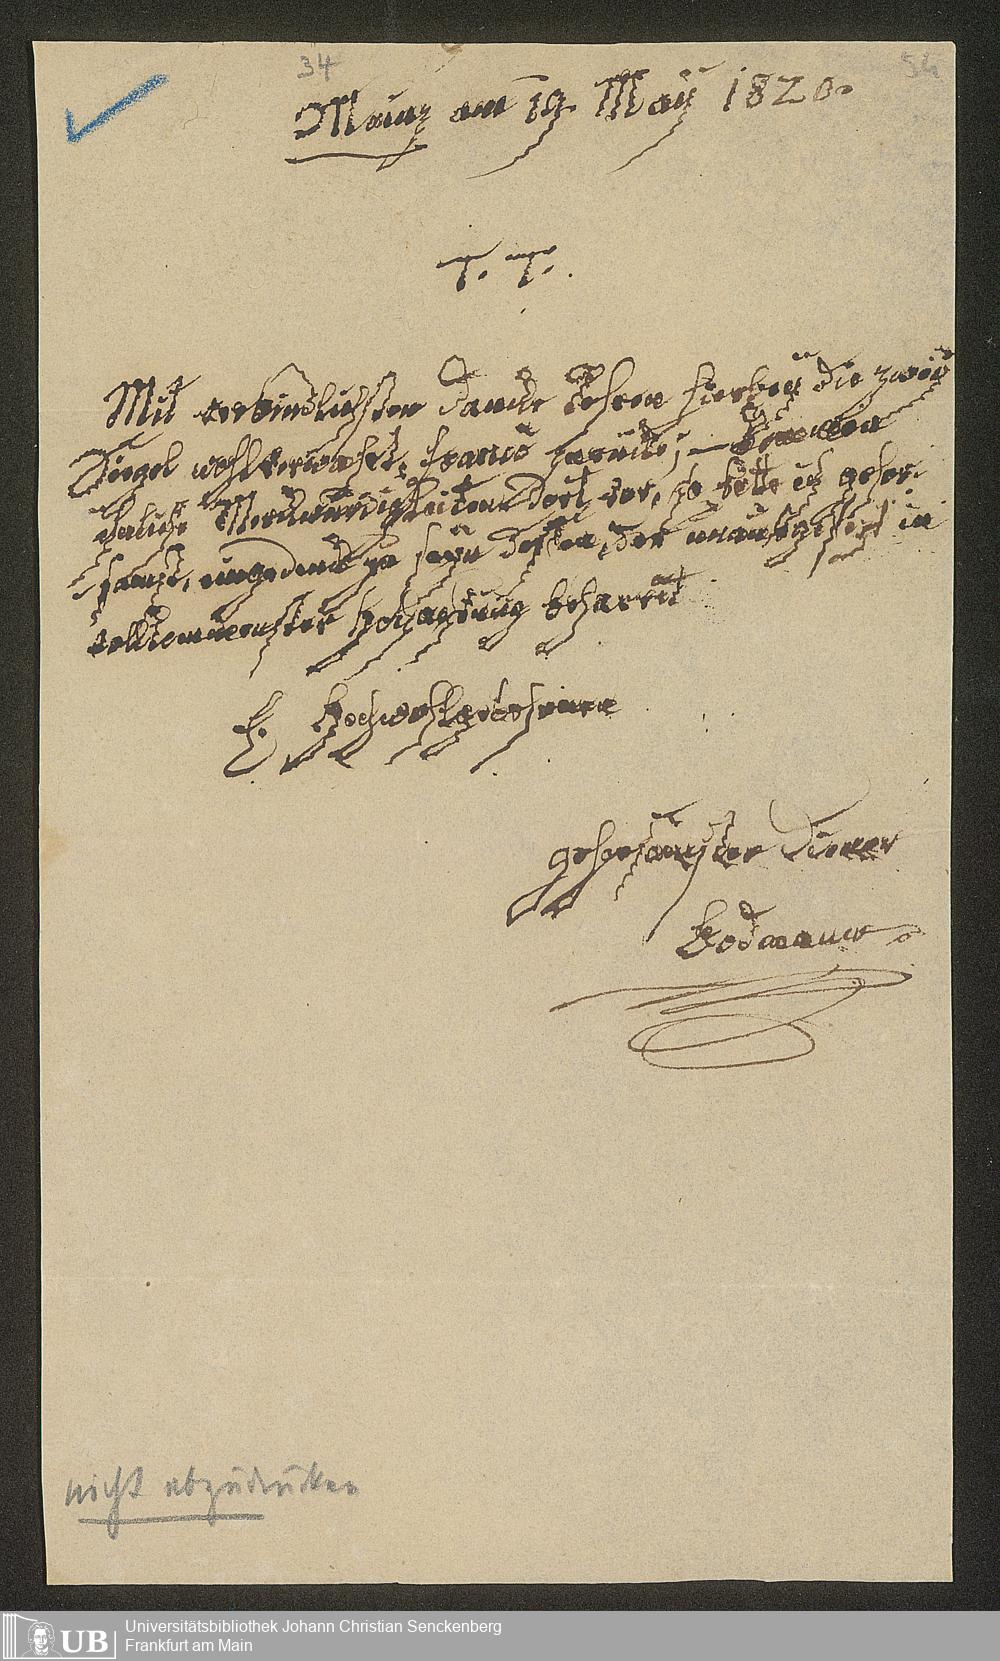 34
54
Mainz am 19. May 1820.
T. T.
Mit verbindlichstem Dancke kehren hierbey die zwey
Siegel wohlverwahrt, franco zurück; – kommen
solche Merckwürdigkeiten dort vor, so bitte ich gehor-
samst, eingedenck zu seyn dessen, der unausgesetzt in
vollkommenster Hochachtung beharrt
E. Hochwohlgebohren
gehorsamster Diener
Bodmann
nicht abzudrucken
UB
Universitätsbibliothek Johann Christian Senckenberg
Frankfurt am Main